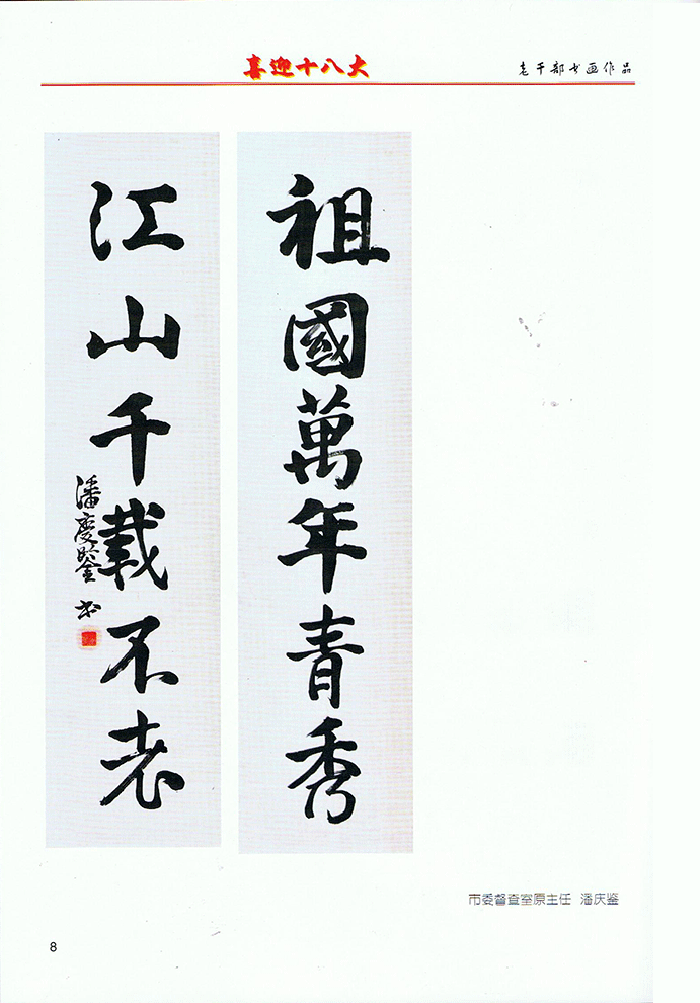 喜迎十八大
老干部书画作品
祖國萬年青秀
江山千載不老
潘慶鑒书
市委督查室原主任 潘庆鉴
8